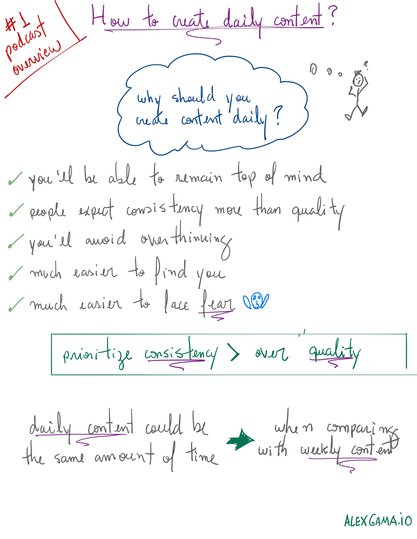 #1
podcast
overview
How to create daily content?
why should you
create content daily?
✓ you'll be able to remain top of mind
✓ people expect consistency more than quality
✓ you'll avoid overthinking
✓ much easier to find you
✓ much easier to face fear
prioritize consistency > over quality
daily content could be
the same amount of time
when comparing
with weekly content
ALEXGAMA.iO